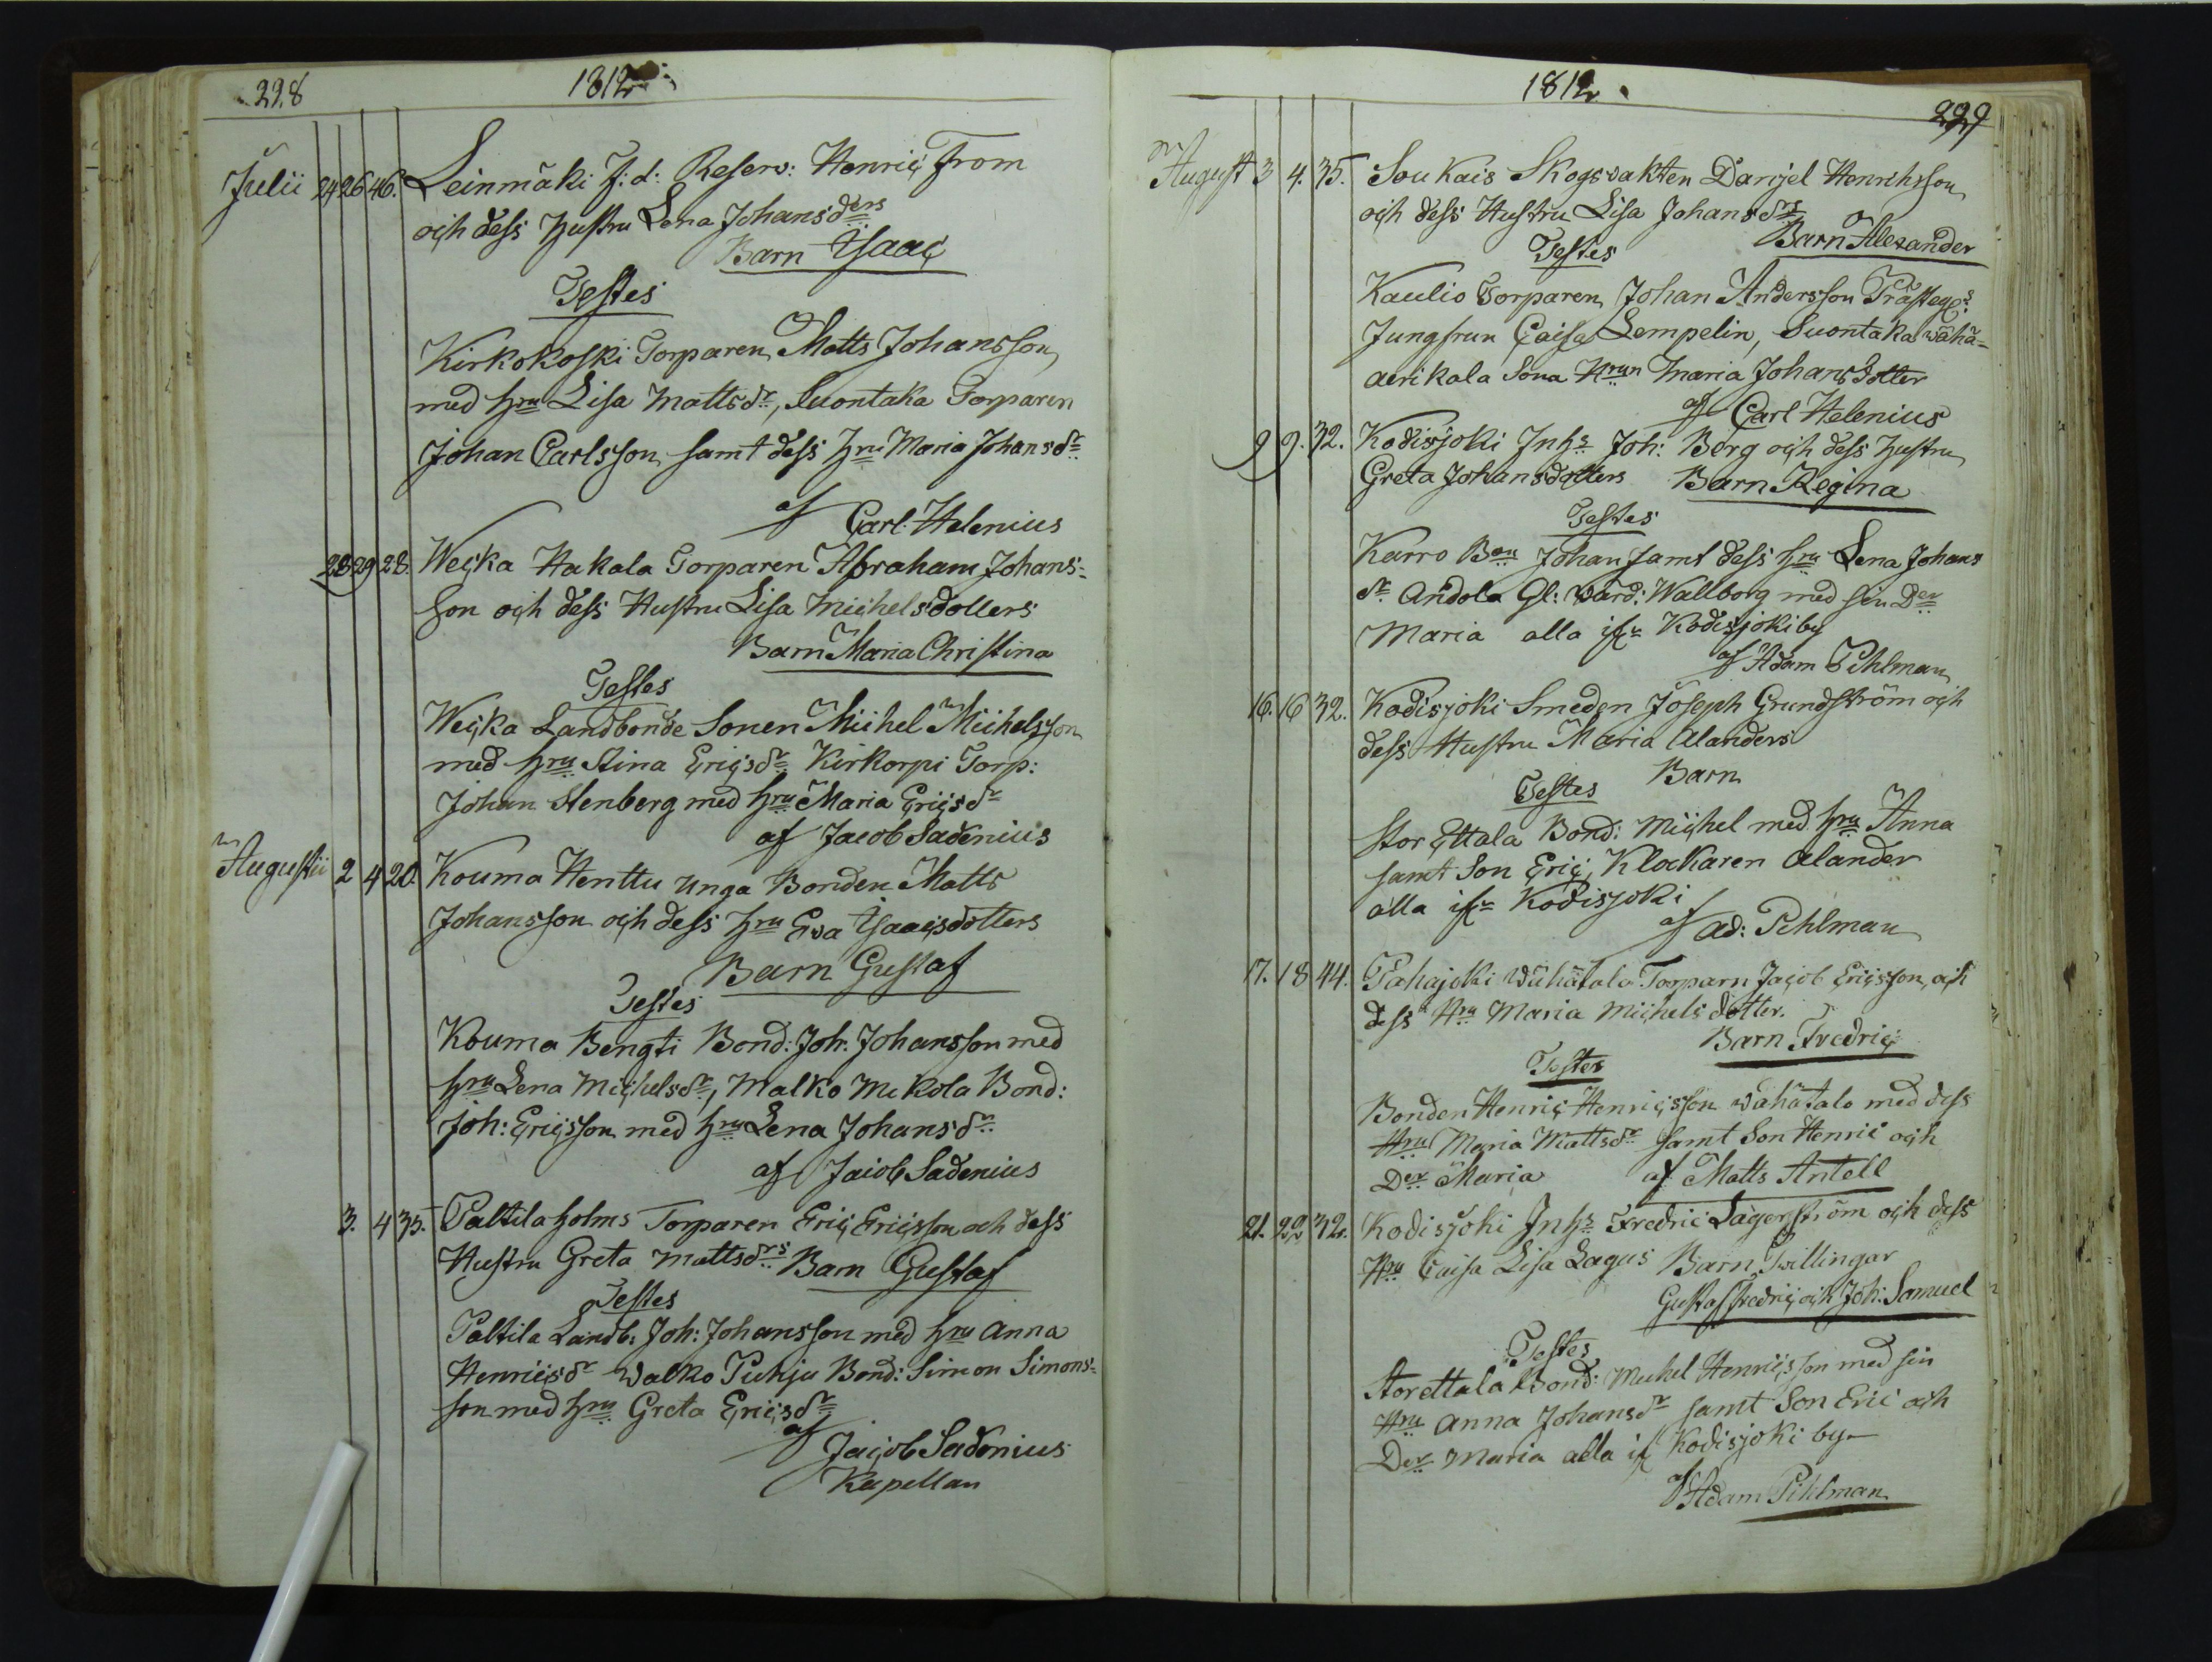 228
1812
Julii 24 26 46. Leinmäki F: d: Reserv: Henric From
och dess hustru Lena Johansders
Barn Isaac
Testes
Kirkokoski Torparen Matts Johansson
med hru Lisa Mattsdr, Suontaka Torparen
Johan Carlsson samt dess hru Maria Johansdr
af Carl Helenius
28 29 28. Wecka Hakala Torparen Abraham Johans=
son och dess Hustru Lisa Michelsdotters
Barn Maria Christina
Testes
Wecka Landbonde Sonen Michel Michelsson
med hru Stina Ericsdr Kirkorpi Torp:
Johan Stenberg med hru Maria Ericsdr
af Jacob Sadenius
Augustii 2 4 20. Kouma Henttu unga Bonden Matts
Johansson och dess hru Eva Isaacsdotters
Barn Gustaf
Testes
Kouma Bengti Bond: Joh: Johansson med
hru Lena Michelsdr, Malko Mikola Bond:
Joh: Ericsson med hru Lena Johansdr
af Jacob Sadenius
3. 4 35. Paltila holms Torparen Eric Ericsson och dess
Hustru Greta Mattsdrs Barn Gustaf
Testes
Paltila Landb: Joh: Johansson med hru Anna
Henricsdr Walko Puhju Bond: Simon Simons=
son med hru Greta Ericsdr
af
Jacob Sadenius
Kapellan
1812.
229
August 3 4. 35. Soukais Skogsvakten Danjel Henrichsson
och dess Hustru Lisa Johansdrs
Barn Alexander
Testes
Kaulio Torparen Johan Andersson Prästegs
Jungfrun Caisa Lempelin, Suontaka wähä=
aerikala Sona Hrun Maria Johansdotter
af Carl Helenius
9 9. 32. Kodisjoki Inhs Joh: Berg och dess hustru
Greta Johansdotters Barn Regina
Testes
Karro Bon Johan samt dess hru Lena Johans
dr Andola Gl: Ward: Wallborg med sin Der
Maria alla ifr Kodisjoki by
af Adam Pihlman
16. 16 32. Kodisjoki Smeden Joseph Grundström och
dess Hustru Maria Alanders
Barn
Testes
Stor Ettala Bond: Michel med hru Anna
samt Son Eric, Klockaren Alander
alla ifr Kodisjoki
af Ad: Pihlman
17. 18 44. Pahajoki Wähätalo Torparn Jacob Ericsson, och
dess Hru Maria Michels dotter.
Barn Fredric
Testes
Bonden Henric Henricsson Wähätalo med dess
Hru Maria Mattsdr samt Son Henric och
Der Maria af Matts Antell
21. 22 32. Kodisjoki Inhs Fredric Lagerström och dess
Hru Caisa Lisa Lagus Barn Twillingar
Gustaf Fredric och Joh: Samuel
Testes
Storettala Bond: Michel Henricsson med sin
Hru Anna Johansdr samt Son Eric och
Der Maria alla if Kodisjoki by
af Adam Pihlman